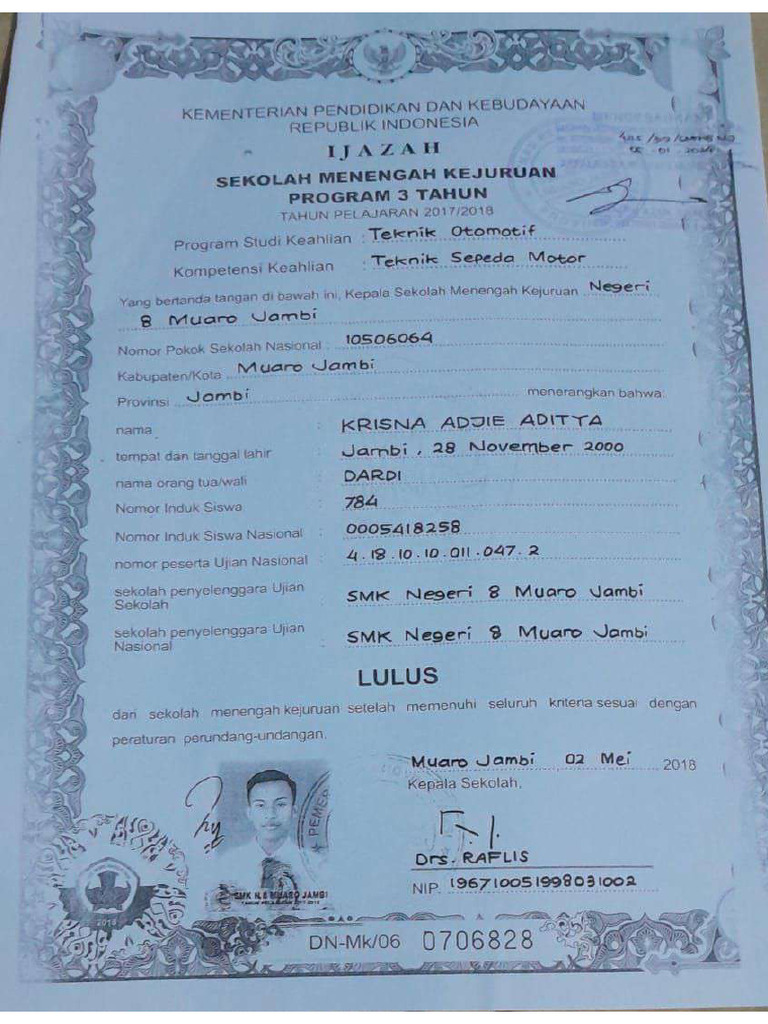 KEMENTERIAN PENDIDIKAN DAN KEBUDAYAAN
REPUBLIK INDONESIA
IJAZAH
SEKOLAH MENENGAH KEJURUAN
PROGRAM 3 TAHUN
TAHUN PELAJARAN 2017/2018
Program Studi Keahlian : Teknik Otomotif
Kompetensi Keahlian : Teknik Sepeda Motor
Yang bertanda tangan di bawah ini, Kepala Sekolah Menengah Kejuruan Negeri
8 Muaro Jambi
Nomor Pokok Sekolah Nasional : 10506064
Kabupaten/Kota Muaro Jambi
Provinsi Jambi menerangkan bahwa:
nama : KRISNA ADJIE ADITYA
tempat dan tanggal lahir : Jambi, 28 November 2000
nama orang tua/wali : DARDI
Nomor Induk Siswa : 784
Nomor Induk Siswa Nasional : 0005418258
nomor peserta Ujian Nasional : 4.18.10.10.011.047.2
sekolah penyelenggara Ujian : SMK Negeri 8 Muaro Jambi
Sekolah
sekolah penyelenggara Ujian : SMK Negeri 8 Muaro Jambi
Nasional
LULUS
dari sekolah menengah kejuruan setelah memenuhi seluruh kriteria sesuai dengan
peraturan perundang-undangan.
Muaro Jambi, 02 Mei 2018
Kepala Sekolah,
PEMER
Drs. RAFLIS
NIP. 196710051998031002
SMK N.8 MUARO JAMBI
2018
DN-Mk/06 0706828